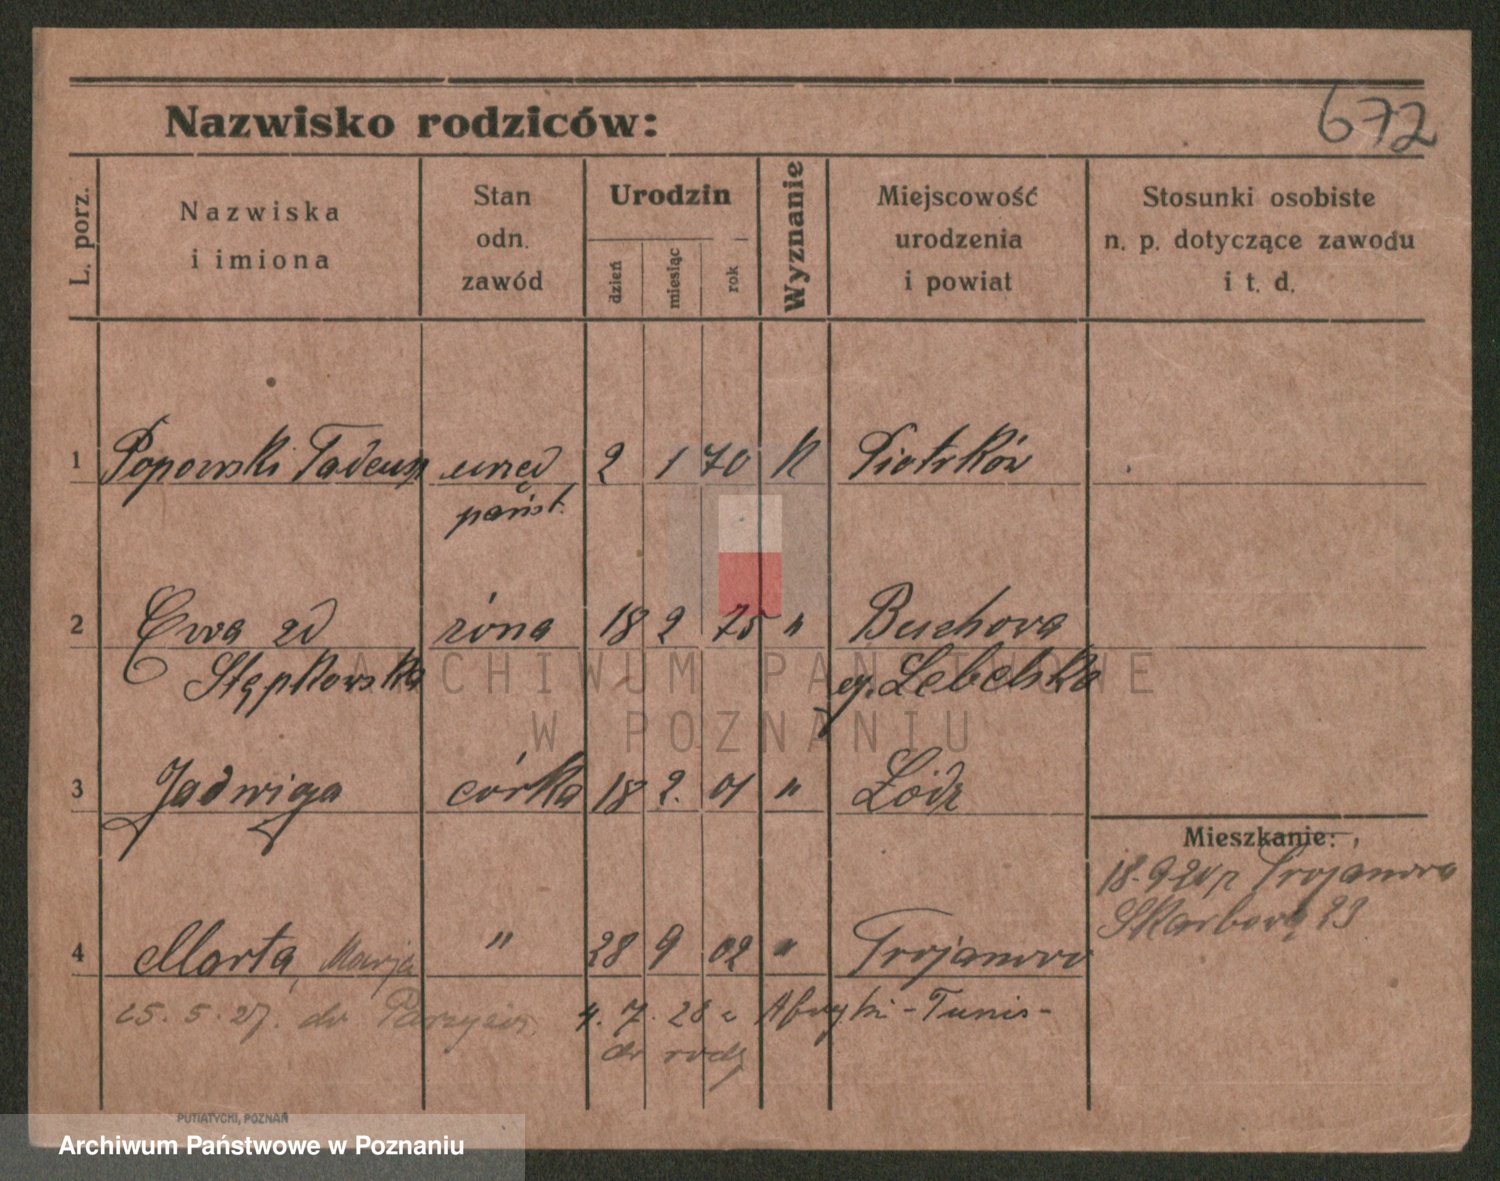 672
Nazwisko rodziców:
L. porz.
Nazwiska
i imiona
Stan
odn.
zawód
Urodzin
dzień
miesiąc
rok
Wyznanie
Miejscowość
urodzenia
i powiat
Stosunki osobiste
n. p. dotyczące zawodu
i t. d.
1 Popowski Tadeusz urzęd 2 1 70 K Piotrków
państ.
2 Ewa zd żona 18 2 75 " Buchowa
Stępkowska
ARCHIWUM PAŃSTWOWE
W POZNANIU
3 Jadwiga córka 18 2. 01 " Łódź
Mieszkanie:
18-9-20 Trojanowa
Skarbowa 23
4 Marta, Marja " 28 9 02 " Trojanowo
25. 5. 27. do 4. 7. 28 z Afryki - Tunis -
do
PUTIATYCKI, POZNAŃ
Archiwum Państwowe w Poznaniu